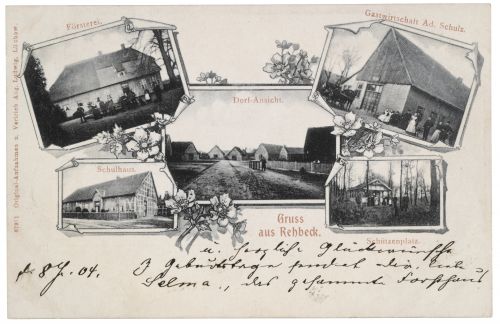 Försterei.
Gastwirtschaft Ad. Schulz.
Dorf-Ansicht.
Schulhaus.
Schützenplatz.
Gruss
aus Rehbeck.
Original-Aufnahmen u. Vertrieb Aug. Ludwig, Lüchow.
u. herzliche Glückwünsche
d. 8/1. 04. 3 Geburtstage sendet dir, liebe
Selma, das gesammte Forsthaus